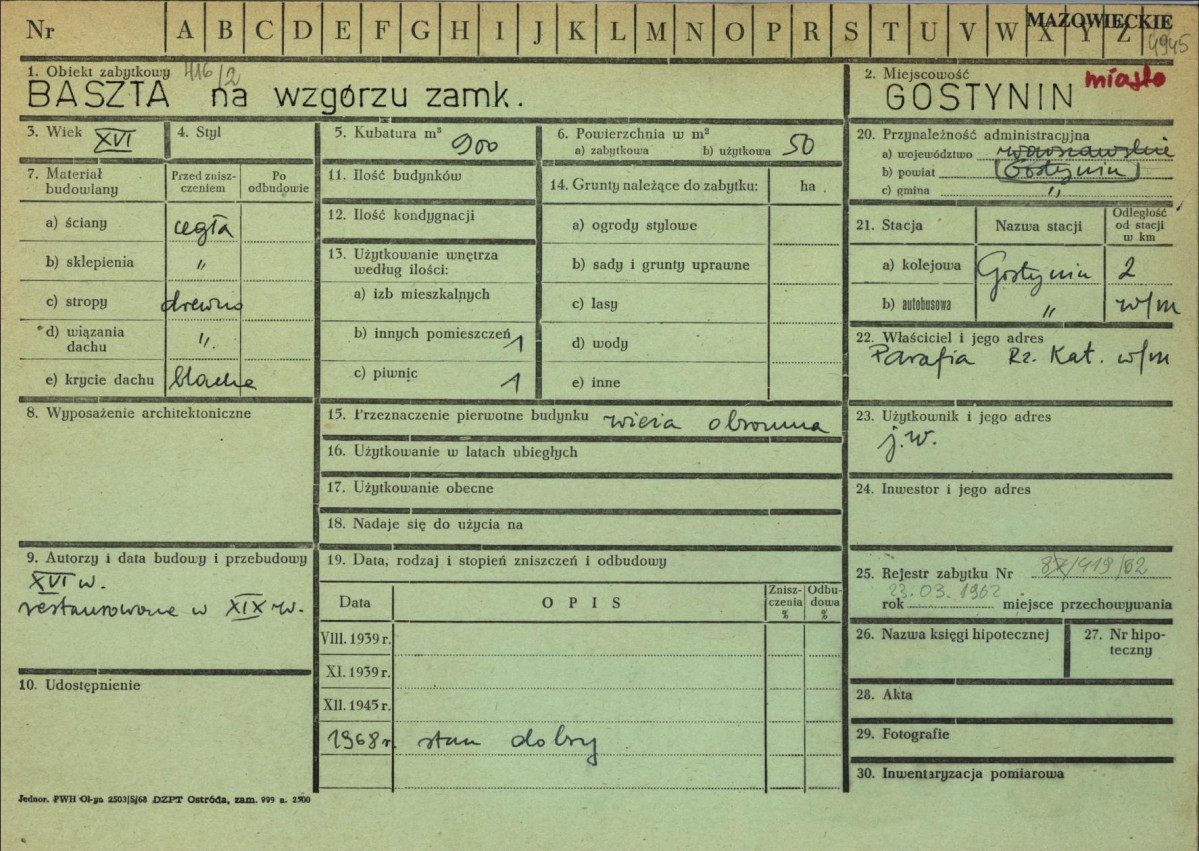 Nr A B C D E F G H I J K L M N O P R S T U V W X Y Z
MAZOWIECKIE
4945
1. Obiekt zabytkowy 416/2
BASZTA na wzgórzu zamk.
2. Miejscowość miasto
GOSTYNIN
3. Wiek XVI
4. Styl
5. Kubatura m³ 900
6. Powierzchnia w m²
a) zabytkowa b) użytkowa 50
7. Materiał budowlany
Przed zniszczeniem
Po odbudowie
a) ściany cegła
b) sklepienia "
c) stropy drewno
d) wiązania dachu ".
e) krycie dachu blacha
8. Wyposażenie architektoniczne
9. Autorzy i data budowy i przebudowy
XVI w.
restaurowane w XIX w.
10. Udostępnienie
11. Ilość budynków
12. Ilość kondygnacji
13. Użytkowanie wnętrza
według ilości:
a) izb mieszkalnych
b) innych pomieszczeń 1
c) piwnic 1
14. Grunty należące do zabytku: ha
a) ogrody stylowe
b) sady i grunty uprawne
c) lasy
d) wody
e) inne
15. Przeznaczenie pierwotne budynku wieża obronna
16. Użytkowanie w latach ubiegłych
17. Użytkowanie obecne
18. Nadaje się do użycia na
19. Data, rodzaj i stopień zniszczeń i odbudowy
Data OPIS Zniszczenia % Odbudowa %
VIII. 1939 r.
XI. 1939 r.
XII. 1945 r.
1968 r. stan dobry
20. Przynależność administracyjna
a) województwo warszawskie
b) powiat Gostynin
c) gmina "
21. Stacja Nazwa stacji Odległość od stacji w km
a) kolejowa Gostynin 2
b) autobusowa " w/m
22. Właściciel i jego adres
Parafia Rz. Kat. w/m
23. Użytkownik i jego adres
j.w.
24. Inwestor i jego adres
25. Rejestr zabytku Nr /419/62
23.03.1962
rok miejsce przechowywania
26. Nazwa księgi hipotecznej
27. Nr hipoteczny
28. Akta
29. Fotografie
30. Inwentaryzacja pomiarowa
Jednor. PWH Ol-yn 2503/S/68 DZPT Ostróda, zam. 999 n. 2500